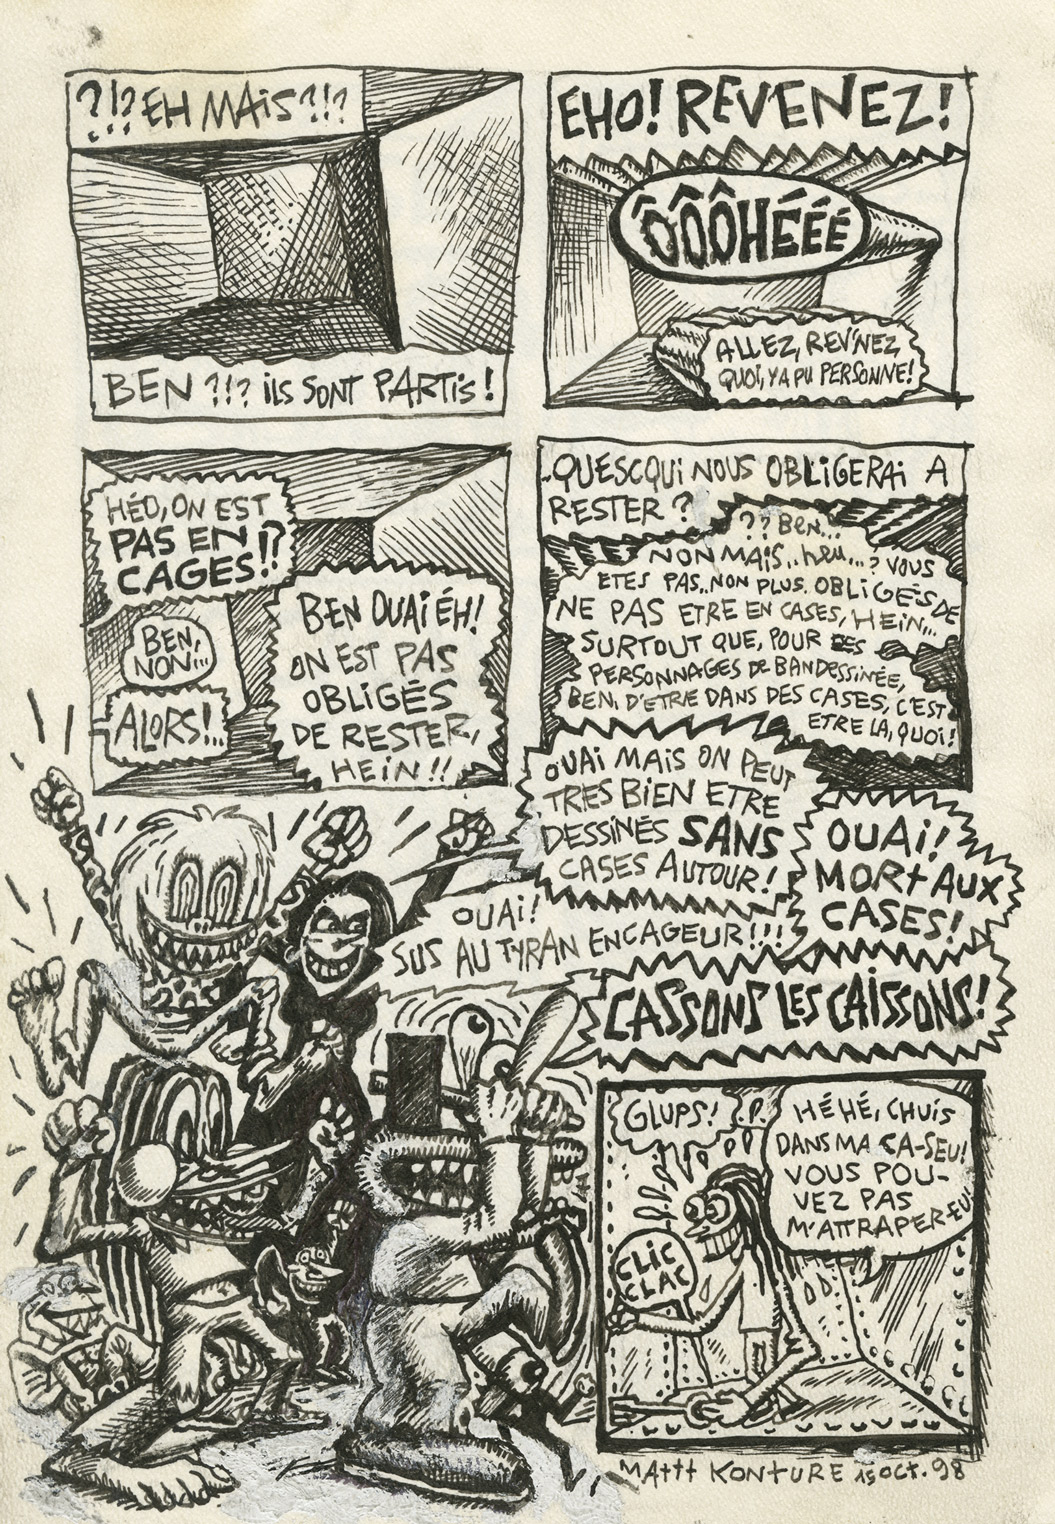 ?!? EH MAiS ?!?
BEN ?!? iLS SONT PARTiS !
EHO! REVENEZ!
ÔÔÔHÉÉÉ
ALLEZ, REV'NEZ,
QUOi, YA PU PERSONNE!
HÉO, ON EST
PAS EN
CAGES!?
BEN,
NON...
ALORS!..
BEN OUAi ÉH!
ON EST PAS
OBLiGÉS
DE RESTER,
HEiN!!
QUESCQUi NOUS OBLiGERAi A
RESTER ?
?? BEN...
NON MAiS.. heu...? VOUS
ETES PAS.. NON PLUS. OBLiGÉS DE
NE PAS ETRE EN CASES, HEiN...
SURTOUT QUE, POUR DES
PERSONNAGES DE BANDESSiNÉE,
BEN, D'ETRE DANS DES CASES, C'EST
ETRE LA, QUOi!
OUAi MAiS ON PEUT
TRES BiEN ETRE
DESSiNÉS SANS
CASES AUTOUR!
OUAi!
MORt AUX
CASES!
OUAi!
SUS AU TYRAN ENCAGEUR!!!
CASSONS LES CAiSSONS!
GLUPS!
!?!
HÉHÉ, CHUiS
DANS MA CA-SEU!
VOUS POU-
VEZ PAS
M'ATTRAPER-EU
CLiC
CLAC
MAttt KONtURE 15 OCt. 98